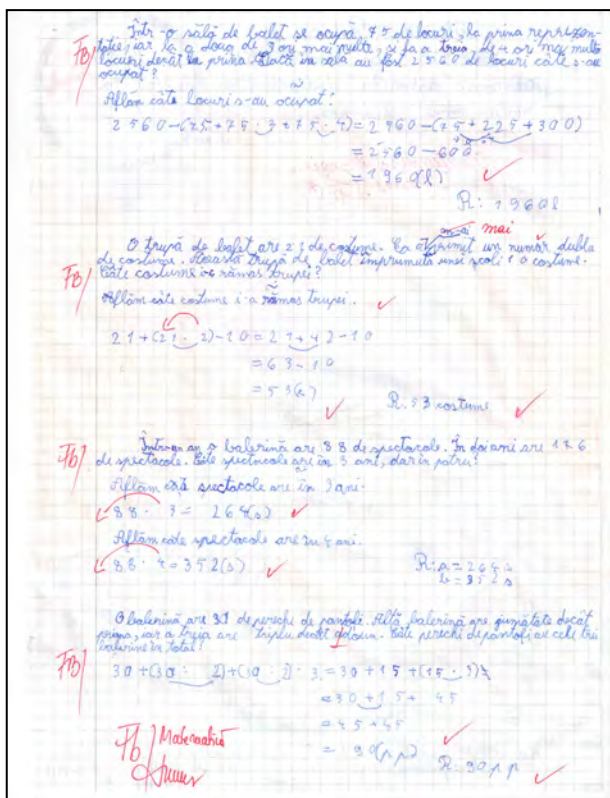 Într-o sală de balet se ocupă 75 de locuri, la prima reprezen-
FB/ tație, iar la a doua de 3 ori mai multe, și la a treia, de 4 ori mai multe
locuri decât la prima. Dacă în sală au fost 2560 de locuri câte s-au
ocupat?
Aflăm câte locuri s-au ocupat:
2560-(75+75·3+75·4)=2560-(75+225+300)
=2560-600
=1960(l)
R: 1960l
mai
O trupă de balet are 21 de costume. Ea a primit un număr dublu
de costume. Această trupă de balet împrumută unei școli 10 costume.
FB/ Câte costume i-a rămas trupei?
Aflăm câte costume i-a rămas trupei.
21+(21·2)-10=21+42-10
=63-10
=53(c)
R: 53 costume
Într-un an o balerină are 88 de spectacole. În doi ani are 176
Fb/ de spectacole. Câte spectacole are în 3 ani, dar în patru?
Aflăm câte spectacole are în 3 ani.
88·3=264(s)
Aflăm câte spectacole are în 4 ani.
88·4=352(s)
R: a=264s
b=352s
O balerină are 30 de perechi de pantofi. Altă balerină are jumătate decât
prima, iar a treia are triplu decât a doua. Câte perechi de pantofi au cele trei
FB/ balerine în total?
30+(30:2)+(30:2)·3=30+15+(15·3)
=30+15+45
=45+45
=90(p.p)
R: 90 p.p
Fb/ Matematică